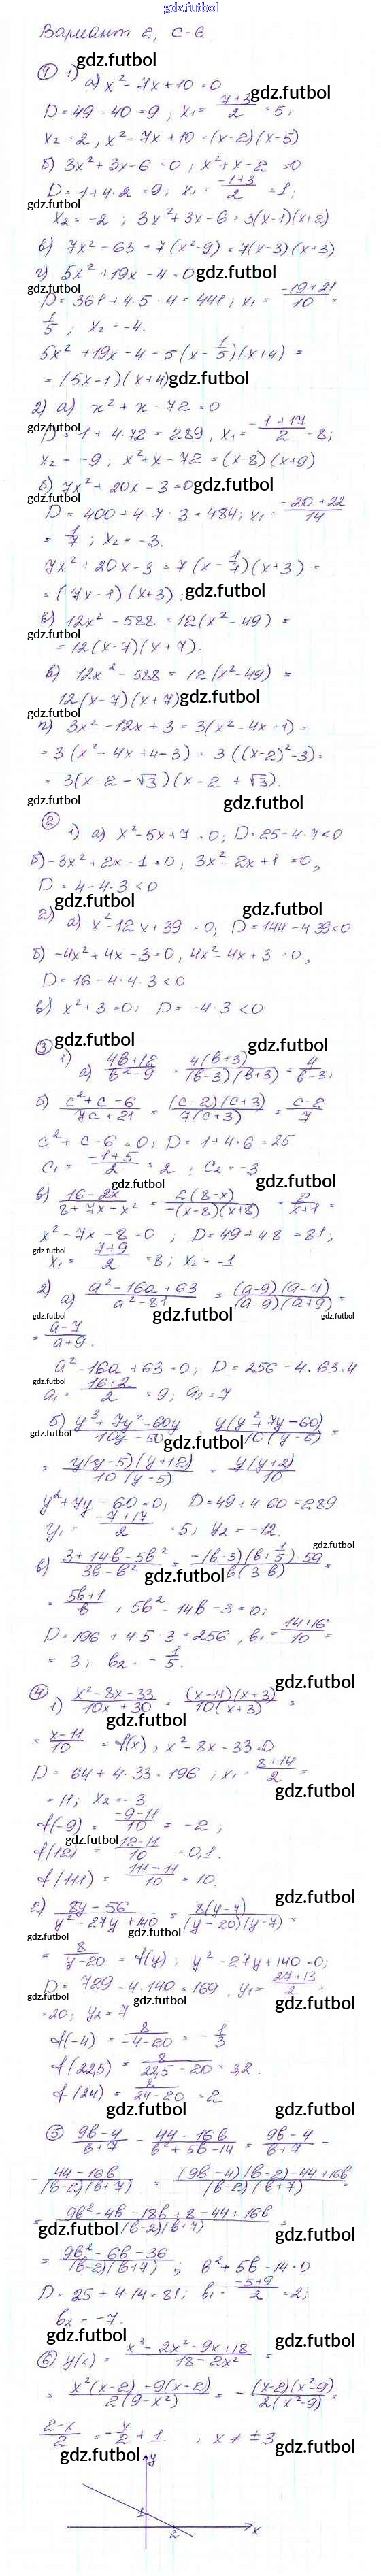 gdz.futbol
Вариант 2, С-6.
① 1) gdz.futbol
а) x² - 7x + 10 = 0
D = 49 - 40 = 9; x₁ = (7+3)/2 = 5; gdz.futbol
x₂ = 2, x² - 7x + 10 = (x-2)(x-5)
б) 3x² + 3x - 6 = 0; x² + x - 2 = 0
D = 1 + 4·2 = 9; x₁ = (-1+3)/2 = 1;
gdz.futbol
x₂ = -2; 3x² + 3x - 6 = 3(x-1)(x+2)
в) 7x² - 63 = 7(x² - 9) = 7(x-3)(x+3)
г) 5x² + 19x - 4 = 0 gdz.futbol
gdz.futbol
D = 361 + 4·5·4 = 441; x₁ = (-19+21)/10 =
1/5; x₂ = -4.
5x² + 19x - 4 = 5(x - 1/5)(x+4) =
= (5x-1)(x+4) gdz.futbol
2) а) x² + x - 72 = 0
gdz.futbol
D = 1 + 4·72 = 289, x₁ = (-1+17)/2 = 8;
x₂ = -9; x² + x - 72 = (x-8)(x+9)
б) 7x² + 20x - 3 = 0 gdz.futbol
gdz.futbol
D = 400 + 4·7·3 = 484; x₁ = (-20+22)/14
= 1/7; x₂ = -3.
7x² + 20x - 3 = 7(x - 1/7)(x+3) =
= (7x-1)(x+3) gdz.futbol
в) 12x² - 588 = 12(x² - 49) =
gdz.futbol
= 12(x-7)(x+7).
в) 12x² - 588 = 12(x² - 49) =
12(x-7)(x+7) gdz.futbol
gdz.futbol
г) 3x² - 12x + 3 = 3(x² - 4x + 1) =
= 3(x² - 4x + 4 - 3) = 3((x-2)² - 3) =
= 3(x - 2 - √3)(x - 2 + √3).
gdz.futbol gdz.futbol
②
1) а) x² - 5x + 7 = 0; D = 25 - 4·7 < 0
б) -3x² + 2x - 1 = 0, 3x² - 2x + 1 = 0,
D = 4 - 4·3 < 0
gdz.futbol gdz.futbol
2) а) x² - 12x + 39 = 0; D = 144 - 4·39 < 0
б) -4x² + 4x - 3 = 0, 4x² - 4x + 3 = 0,
D = 16 - 4·4·3 < 0
в) x² + 3 = 0; D = -4·3 < 0
③ gdz.futbol gdz.futbol
1) а) (4b+12)/(b²-9) = 4(b+3)/((b-3)(b+3)) = 4/(b-3);
б) (c²+c-6)/(7c+21) = (c-2)(c+3)/(7(c+3)) = (c-2)/7
c² + c - 6 = 0; D = 1 + 4·6 = 25
c₁ = (-1+5)/2 = 2; c₂ = -3
gdz.futbol gdz.futbol
в) (16-2x)/(8+7x-x²) = 2(8-x)/(-(x-8)(x+8)) = 2/(x+1) =
x² - 7x - 8 = 0, D = 49 + 4·8 = 81;
gdz.futbol
x₁ = (7+9)/2 = 8; x₂ = -1
2) а) (a²-16a+63)/(a²-81) = (a-9)(a-7)/((a-9)(a+9)) =
gdz.futbol gdz.futbol gdz.futbol
= (a-7)/(a+9).
a² - 16a + 63 = 0; D = 256 - 4·63·4
gdz.futbol
a₁ = (16+2)/2 = 9; a₂ = 7
б) (y³+7y²-60y)/(10y-50) = y(y²+7y-60)/(10(y-5)) =
gdz.futbol gdz.futbol
= y(y-5)(y+12)/(10(y-5)) = y(y+2)/10
y² + 7y - 60 = 0; D = 49 + 4·60 = 289
y₁ = (-7+17)/2 = 5; y₂ = -12.
gdz.futbol
в) (3+14b-5b²)/(3b-b²) = -(b-3)(b+1/5)·59/(b(3-b)) =
gdz.futbol gdz.futbol
= (5b+1)/b, 5b² - 14b - 3 = 0;
D = 196 + 4·5·3 = 256, b₁ = (14+16)/10 =
= 3; b₂ = -1/5.
gdz.futbol
④ 1) (x²-8x-33)/(10x+30) = (x-11)(x+3)/(10(x+3)) =
gdz.futbol
= (x-11)/10 = f(x), x² - 8x - 33 = 0
D = 64 + 4·33 = 196; x₁ = (8+14)/2 =
= 11; x₂ = -3 gdz.futbol
f(-9) = (-9-11)/10 = -2;
gdz.futbol
f(12) = (12-11)/10 = 0,1.
f(111) = (111-11)/10 = 10.
gdz.futbol
2) (8y-56)/(y²-27y+140) = 8(y-7)/((y-20)(y-7)) =
gdz.futbol gdz.futbol
= 8/(y-20) = f(y); y² - 27y + 140 = 0;
D = 729 - 4·140 = 169, y₁ = (27+13)/2 =
gdz.futbol gdz.futbol gdz.futbol
= 20; y₂ = 7
f(-4) = 8/(-4-20) = -1/3
f(22,5) = 8/(22,5-20) = 3,2.
f(24) = 8/(24-20) = 2
gdz.futbol gdz.futbol
⑤ (9b-4)/(b+7) - (44-16b)/(b²+5b-14) = (9b-4)/(b+7) -
- (44-16b)/((b-2)(b+7)) = ((9b-4)(b-2)-44+16b)/((b-2)(b+7)) =
= (9b²-4b-18b+8-44+16b)/((b-2)(b+7)) =
gdz.futbol gdz.futbol
= (9b²-6b-36)/((b-2)(b+7)); b² + 5b - 14 = 0
D = 25 + 4·14 = 81; b₁ = (-5+9)/2 = 2;
b₂ = -7.
gdz.futbol gdz.futbol
⑥ y(x) = (x³-2x²-9x+18)/(18-2x²) =
= (x²(x-2)-9(x-2))/(2(9-x²)) = -(x-2)(x²-9)/(2(x²-9)) =
(2-x)/2 = -x/2 + 1. ; x ≠ ±3
gdz.futbol gdz.futbol
y
1
2 x